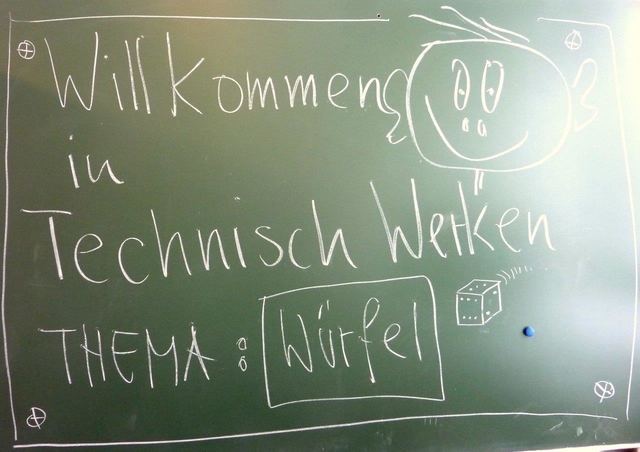 Willkommen
in
Technisch Werken
THEMA: Würfel